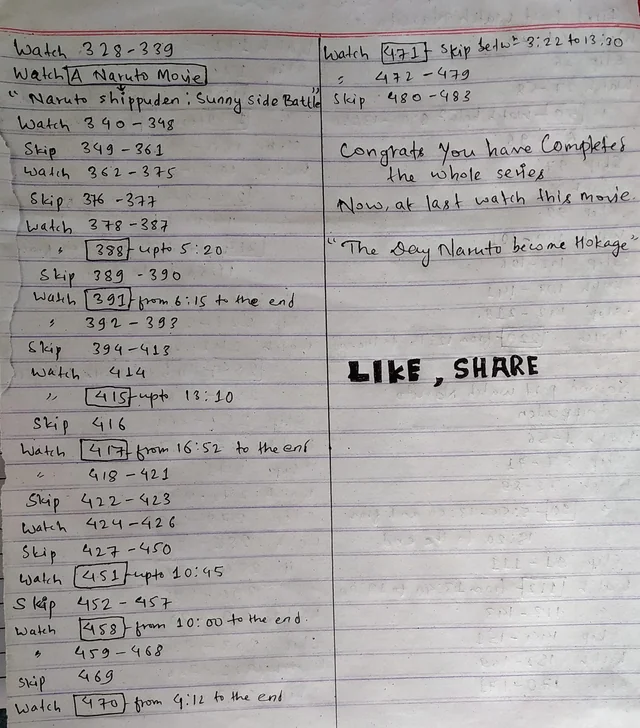 Watch 328-339
Watch A Naruto Movie
"Naruto shippuden : Sunny Side Battle"
Watch 340-348
Skip 349-361
Watch 362-375
Skip 376-377
Watch 378-387
" 388 upto 5:20
Skip 389-390
Watch 391 from 6:15 to the end
" 392-393
Skip 394-413
Watch 414
" 415 upto 13:10
Skip 416
Watch 417 from 16:52 to the end
" 418-421
Skip 422-423
Watch 424-426
Skip 427-450
Watch 451 upto 10:45
Skip 452-457
Watch 458 from 10:00 to the end.
" 459-468
Skip 469
Watch 470 from 4:12 to the end
Watch 471 Skip betwn 3:22 to 13:30
" 472-479
Skip 480-483
Congrats You have Completes
the whole series
Now, at last watch this movie.
"The Day Naruto become Hokage"
LIKE, SHARE